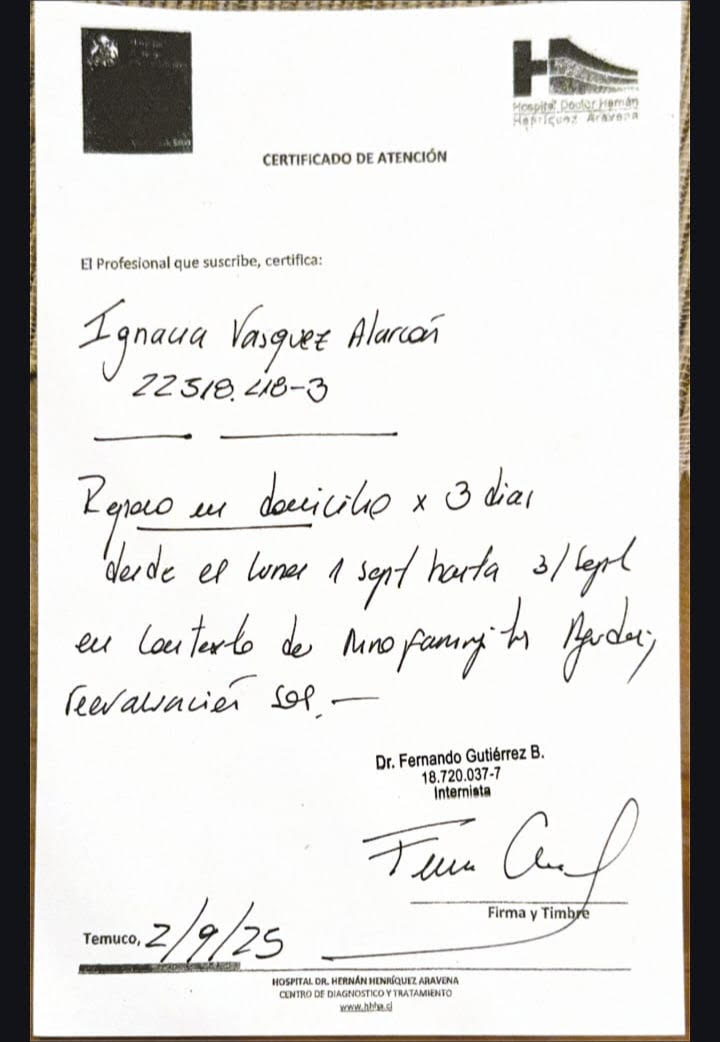 Hospital Doctor Hernán
Henríquez Aravena
CERTIFICADO DE ATENCIÓN
El Profesional que suscribe, certifica:
Ignacia Vasquez Alarcón
22518.418-3
Reposo en domicilio x 3 dias
desde el lunes 1 sept hasta 3/sept
en contexto de Rinofaringitis Aguda,
reevaluación SOS.
Dr. Fernando Gutiérrez B.
18.720.037-7
Internista
Firma y Timbre
Temuco, 2/9/25
HOSPITAL DR. HERNÁN HENRÍQUEZ ARAVENA
CENTRO DE DIAGNOSTICO Y TRATAMIENTO
www.hhha.cl